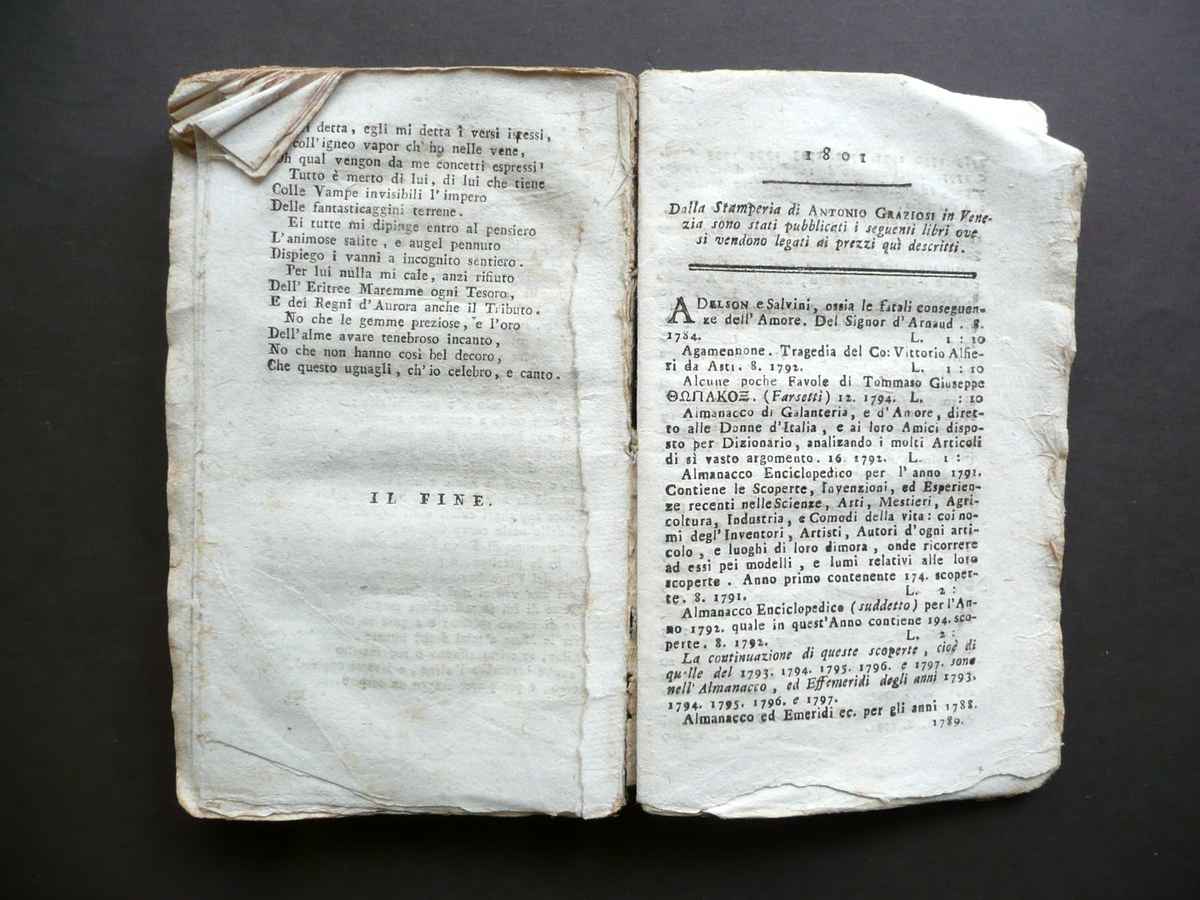 detta, egli mi detta i versi istessi,
coll'igneo vapor ch'ho nelle vene,
Oh qual vengon da me concetti espressi!
Tutto è merto di lui, di lui che tiene
Colle Vampe invisibili l'impero
Delle fantasticaggini terrene.
Ei tutte mi dipinge entro al pensiero
L'animose salite, e augel pennuto
Dispiego i vanni a incognito sentiero.
Per lui nulla mi cale, anzi rifiuto
Dell'Eritree Maremme ogni Tesoro,
E dei Regni d'Aurora anche il Tributo.
No che le gemme preziose, e l'oro
Dell'alme avare tenebroso incanto,
No che non hanno così bel decoro,
Che questo uguagli, ch'io celebro, e canto.
IL FINE.
1801
Dalla Stamperia di ANTONIO GRAZIOSI in Vene-
zia sono stati pubblicati i seguenti libri ove
si vendono legati ai prezzi quì descritti.
ADELSON e Salvini, ossia le fatali conseguen-
ze dell'Amore. Del Signor d'Arnaud. 8.
1784. L. 1 : 10
Agamennone. Tragedia del Co: Vittorio Alfie-
ri da Asti. 8. 1792. L. 1 : 10
Alcune poche Favole di Tommaso Giuseppe
ΘΩΠΑΚΟΞ. (Farsetti) 12. 1794. L. : 10
Almanacco di Galanteria, e d'Amore, diret-
to alle Donne d'Italia, e ai loro Amici dispo-
sto per Dizionario, analizando i molti Articoli
di sì vasto argomento. 16. 1792. L. 1 :
Almanacco Enciclopedico per l'anno 1791.
Contiene le Scoperte, Invenzioni, ed Esperien-
ze recenti nelle Scienze, Arti, Mestieri, Agri-
coltura, Industria, e Comodi della vita: coi no-
mi degl'Inventori, Artisti, Autori d'ogni arti-
colo, e luoghi di loro dimora, onde ricorrere
ad essi pei modelli, e lumi relativi alle loro
scoperte. Anno primo contenente 174. scoper-
te. 8. 1791. L. 2 :
Almanacco Enciclopedico (suddetto) per l'An-
no 1792. quale in quest'Anno contiene 194. sco-
perte. 8. 1792. L. 2 :
La continuazione di queste scoperte, cioè di
quelle del 1793. 1794. 1795. 1796. e 1797. sono
nell'Almanacco, ed Effemeridi degli anni 1793.
1794. 1795. 1796. e 1797.
Almanacco ed Emeridi ec. per gli anni 1788.
1789.